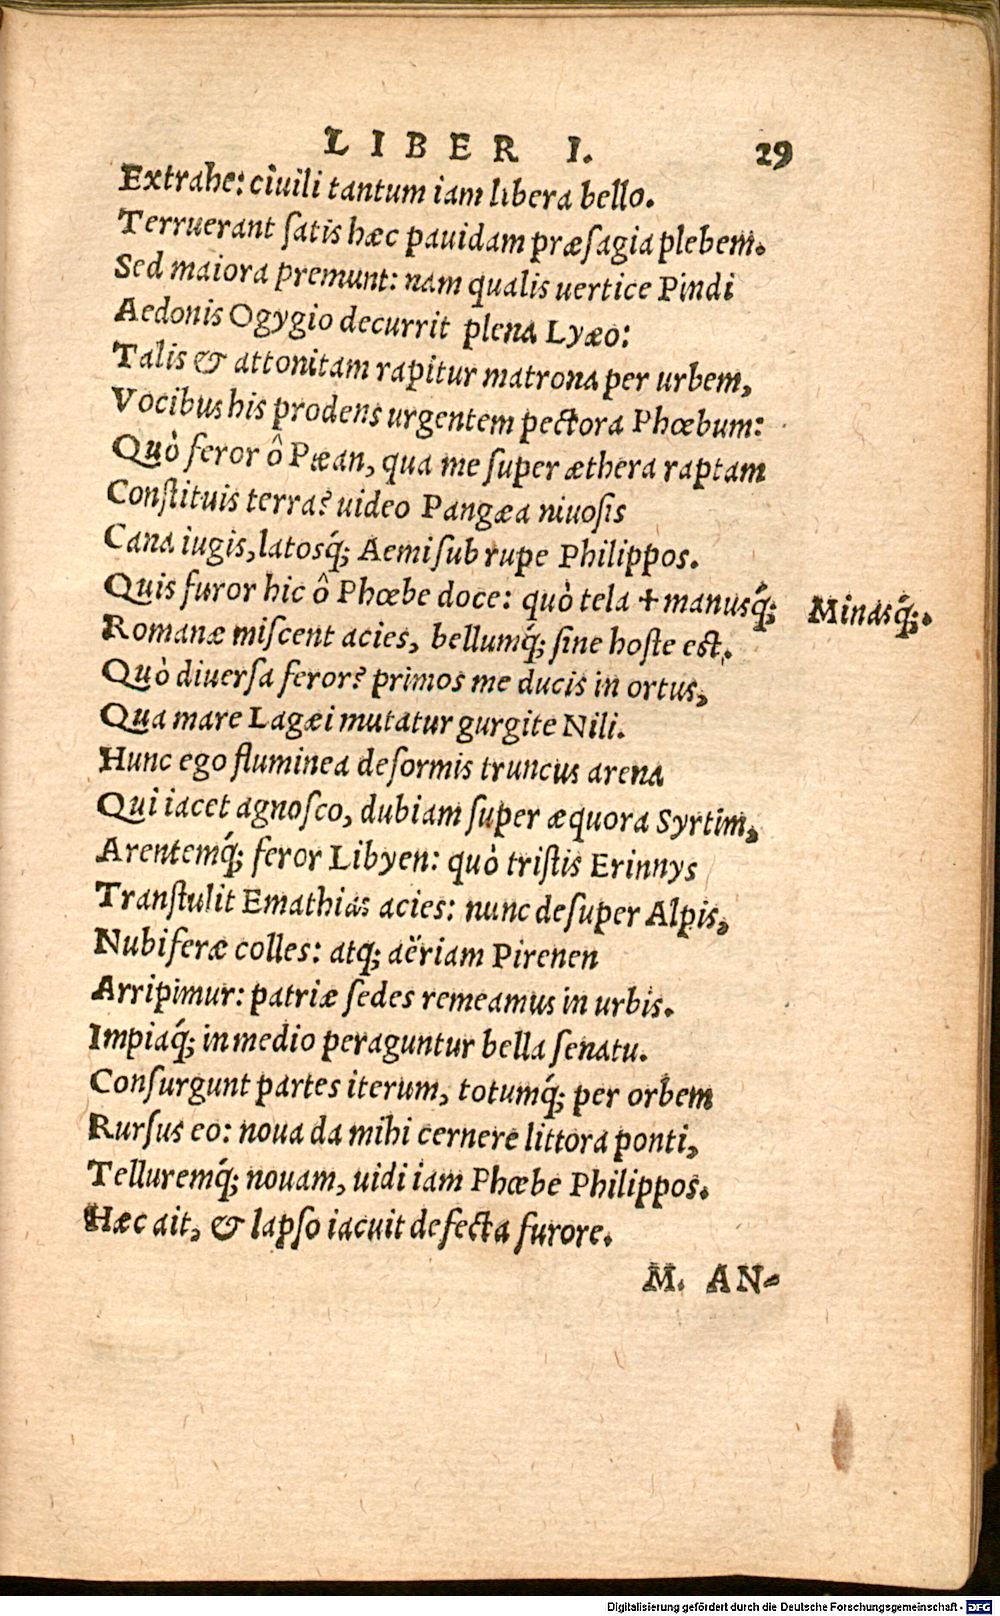 LIBER I. 29
Extrahe: ciuili tantum iam libera bello.
Terruerant ſatis hæc pauidam præſagia plebem.
Sed maiora premunt: nam qualis uertice Pindi
Aedonis Ogygio decurrit plena Lyæo:
Talis & attonitam rapitur matrona per urbem,
Vocibus his prodens urgentem pectora Phœbum:
Quò feror ô Pæan, qua me ſuper æthera raptam
Conſtituis terra? uideo Pangæa niuoſis
Cana iugis, latosq́; Aemi ſub rupe Philippos.
Quis furor hic ô Phœbe doce: quò tela + manusq́; Minasq́;.
Romanæ miſcent acies, bellumq́; ſine hoſte eſt.
Quò diuerſa feror? primos me ducis in ortus,
Qua mare Lagæi mutatur gurgite Nili.
Hunc ego fluminea deformis truncus arena
Qui iacet agnoſco, dubiam ſuper æquora Syrtim,
Arentemq́; feror Libyen: quò triſtis Erinnys
Tranſtulit Emathias acies: nunc deſuper Alpis,
Nubiferæ colles: atq; aëriam Pirenen
Arripimur: patriæ ſedes remeamus in urbis.
Impiaq́; in medio peraguntur bella ſenatu.
Conſurgunt partes iterum, totumq́; per orbem
Rurſus eo: noua da mihi cernere littora ponti,
Telluremq́; nouam, uidi iam Phœbe Philippos.
Hæc ait, & lapſo iacuit defecta furore.
M. AN-
Digitalisierung gefördert durch die Deutsche Forschungsgemeinschaft - DFG